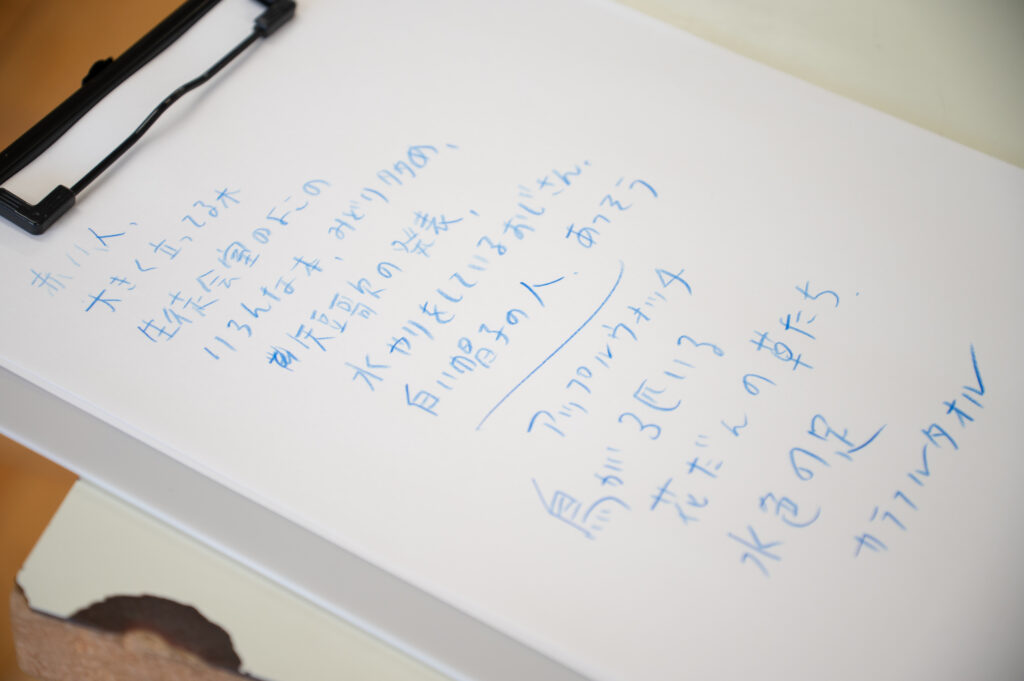 赤い人、
大きく立ってる木
生徒会室のよこの
いろんな本、みどり多め、
短歌の発表、
水やりをしているおじさん、
白い帽子の人、あつそう
アップルウォッチ
鳥が3匹いる
花だんの草たち
水色の足
カラフルタオル